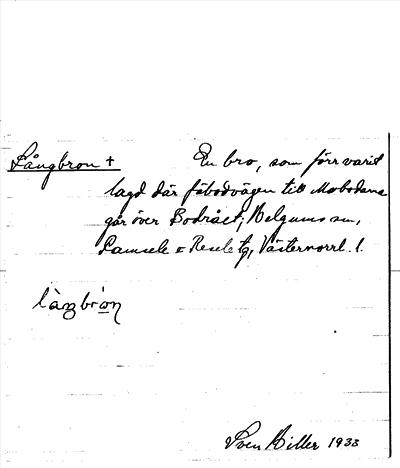 Långbron +
En bro, som förr varit
lagd där fäbodvägen till Mobodarna
går över Bodrået; Helgums sn,
Ramsele o Resele tg, Västernorrl. l.
làŋbròn
Sven Hiller 1933